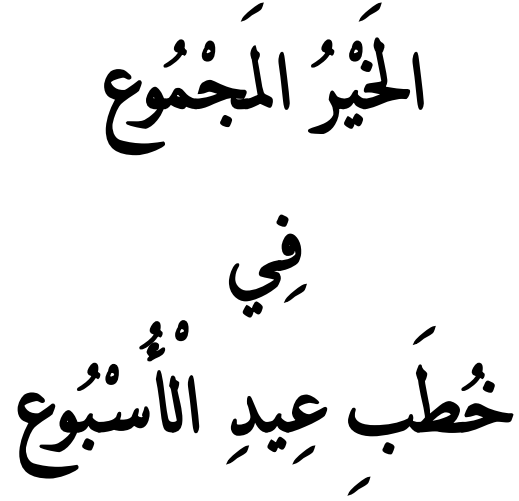 الخَيْرُ المَجْمُوع
فِي
خُطَبِ عِيدِ الْأُسْبُوع